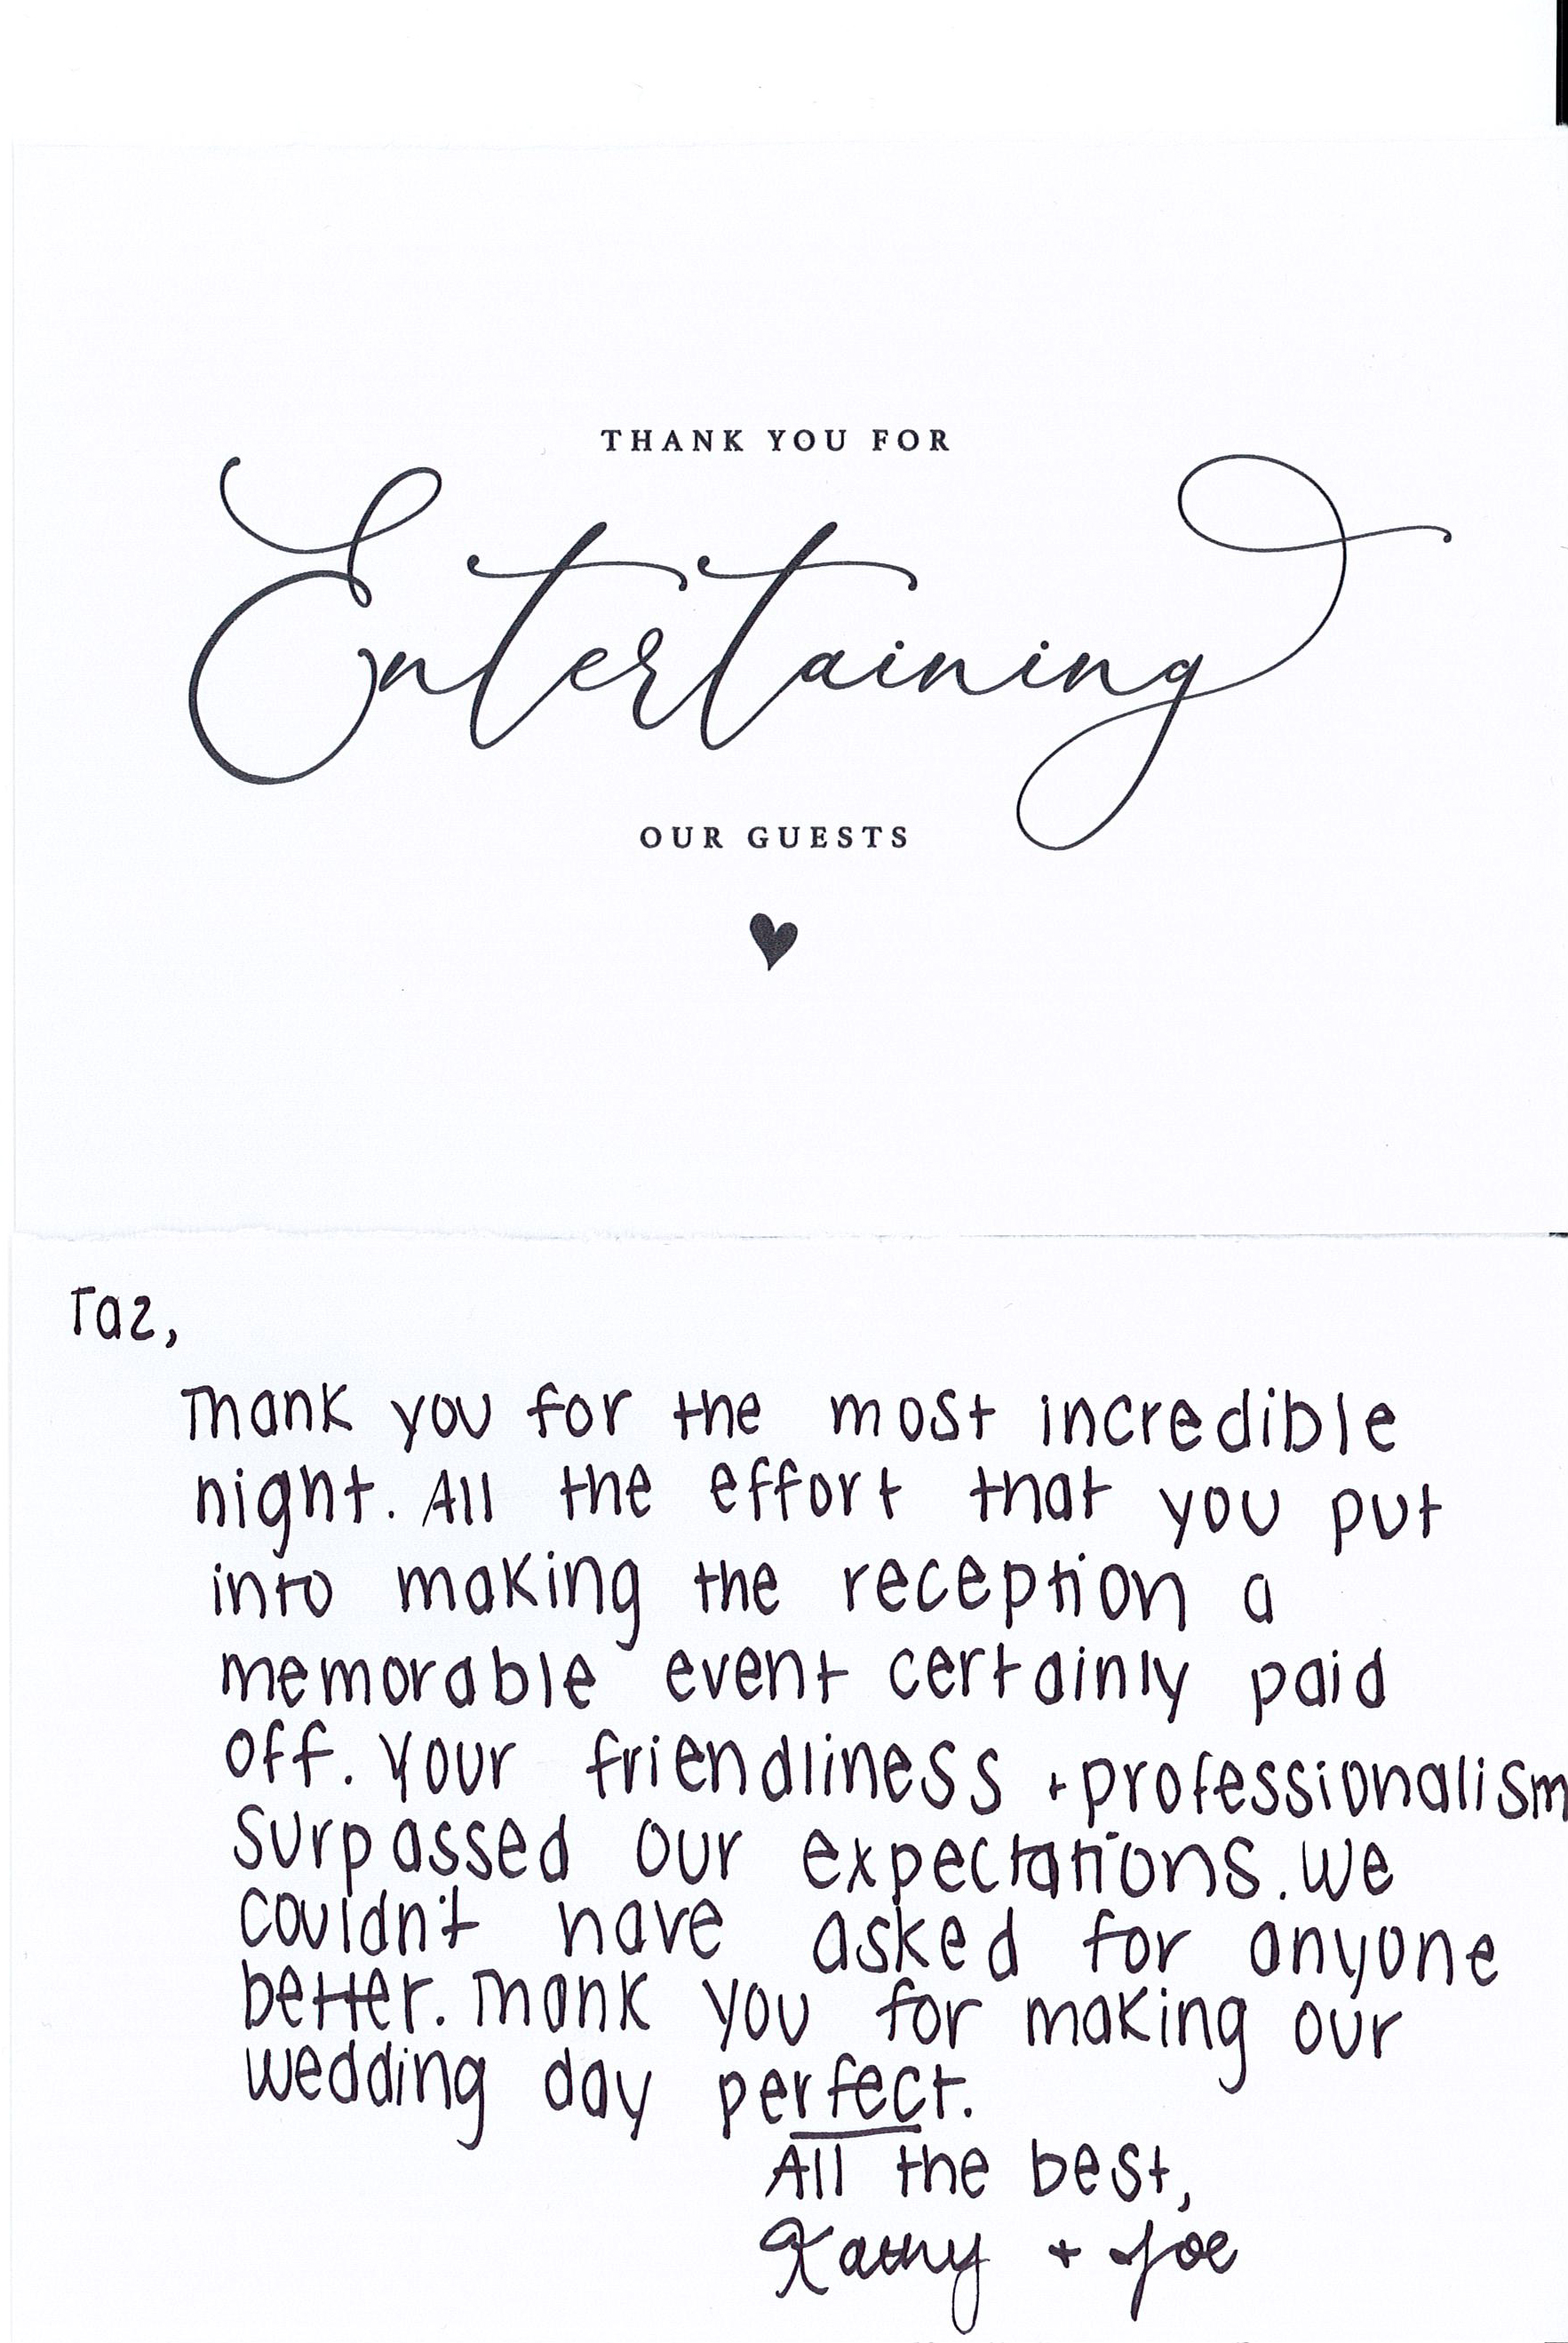 THANK YOU FOR
Entertaining
OUR GUESTS
Taz,
Thank you for the most incredible
night. All the effort that you put
into making the reception a
memorable event certainly paid
off. Your friendliness + professionalism
surpassed our expectations. We
couldn't have asked for anyone
better. Thank you for making our
wedding day perfect.
All the best,
Kathy + Joe